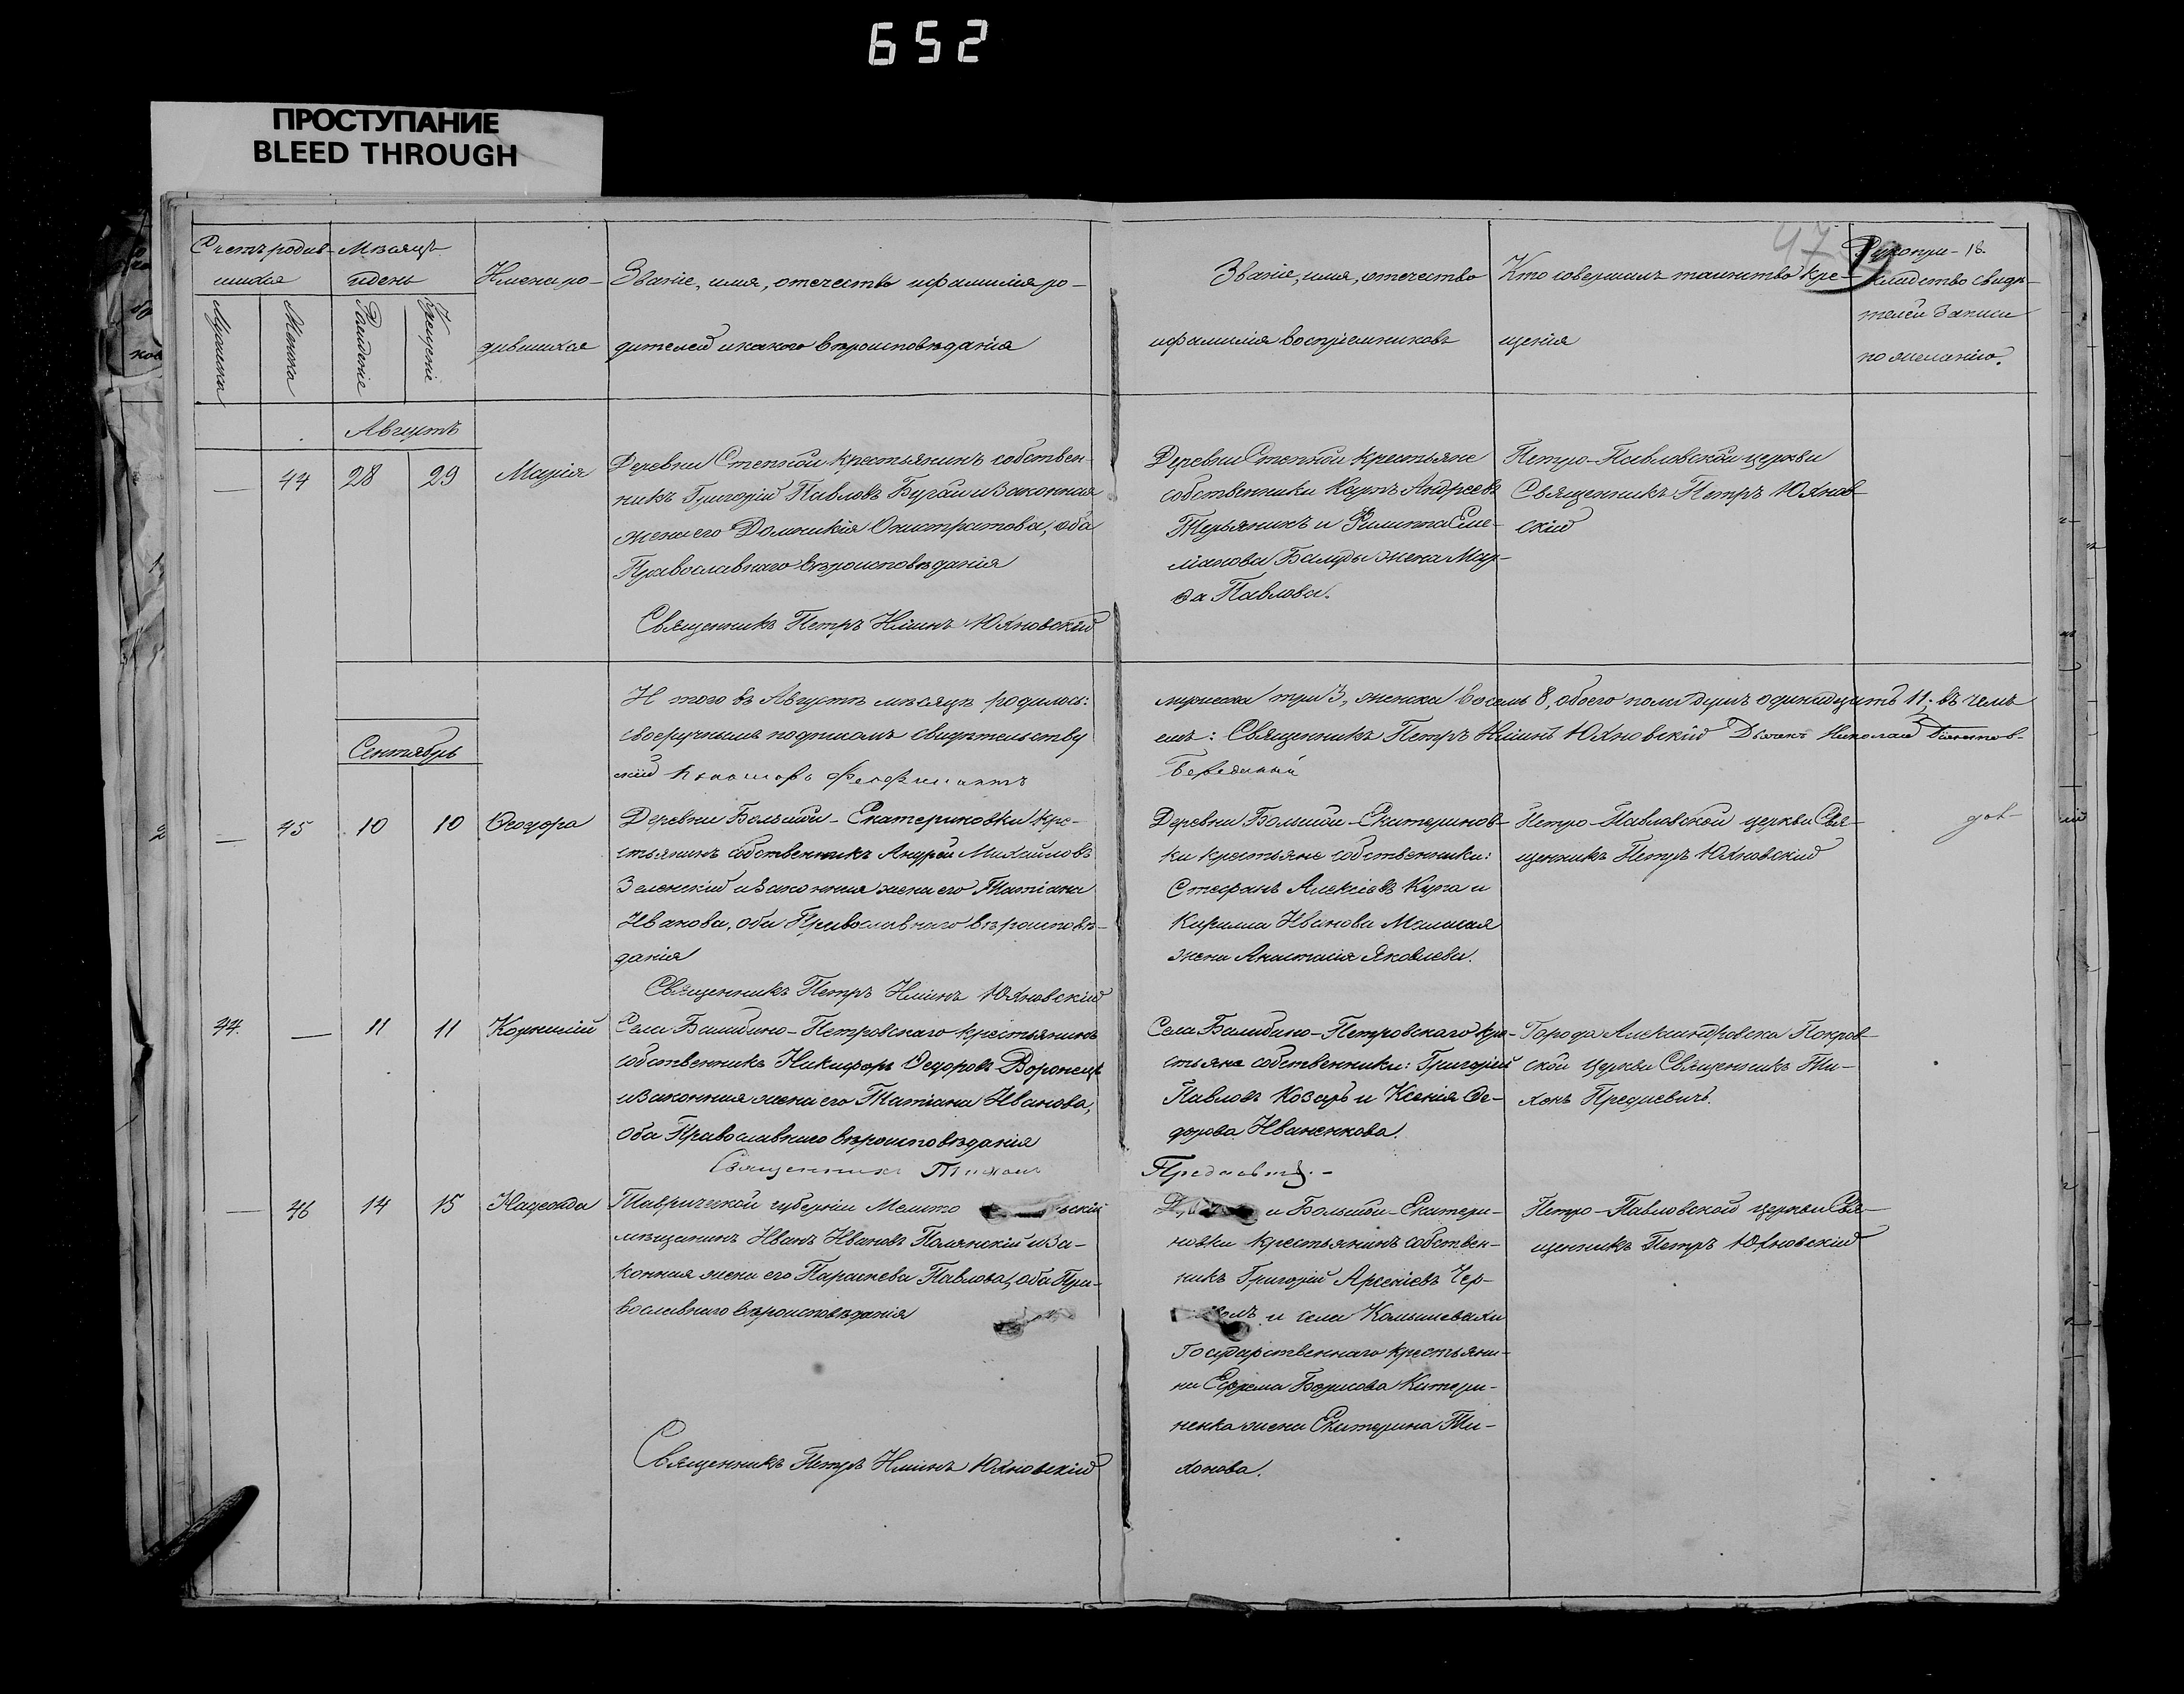 652
ПРОСТУПАНИЕ
BLEED THROUGH
Счетъ родив-
шихся
Мужеска
Женска
Мѣсяцъ
и день
Рожденіе
Крещеніе
Имена ро-
дившихся
Званіе, имя, отечество и фамилія ро-
дителей и какого вѣроисповѣданія
Званіе, имя, отечество
и фамилія воспріемниковъ
Кто совершилъ таинство кре-
щенія
Рукопри-
кладство свидѣ-
телей записи
по желанію.
18
97
Августъ
— 44 28 29 Марія
Деревни Степной крестьянинъ собствен-
никъ Григорій Павловъ Бугай и законная
жена его Домникія Онистратова, оба
Православнаго вѣроисповѣданія
Священникъ Петръ Юхновскій
Деревни Степной крестьяне
собственники Карпъ Андреевъ
и Филиппа Еме-
ліанова жена
Павлова.
Петро-Павловской церкви
Священникъ Петръ Юхнов-
скій
И того въ Августѣ мѣсяцѣ родилось: мужеска три 3, женска восемь 8, обоего пола душъ одинадцать 11; въ чемъ
своеручнымъ подписомъ свидѣтельству емъ: Священникъ Петръ Юхновскій Дьякъ Николай
скій
Сентябрь
— 45 10 10 Ѳеодора
Деревни Большой-Екатериновки кре-
стьянинъ собственникъ Андрей Михайловъ
Зеленскій и законная жена его Татіана
Иванова, оба Православнаго вѣроисповѣ-
данія
Священникъ Петръ Юхновскій
Деревни Большой-Екатеринов-
ки крестьяне собственники:
Стефанъ Алексіевъ и
Кирилла Иванова
жена Анастасія Яковлева.
Петро-Павловской церкви Свя-
щенникъ Петръ Юхновскій
44. — 11 11 Корнилій
Села Балабино-Петровскаго крестьянинъ
собственникъ Никифоръ Ѳедоровъ Воронецъ
и законная жена его Татіана Иванова,
оба Православнаго вѣроисповѣданія
Священникъ Тихонъ
Села Балабино-Петровскаго кре-
стьяне собственники: Григорій
Павловъ Козаръ и Ксенія Ѳе-
дорова Иваненкова.
Города Александровска Покров-
ской церкви Священникъ Ти-
хонъ
— 46 14 15 Надежда
Таврической губерніи Мелито скій
мѣщанинъ Иванъ Ивановъ Полянскій и за-
конная жена его Параскева Павлова, оба Пра-
вославнаго вѣроисповѣданія
Священникъ Петръ Юхновскій
и Большой-Екатери-
новки крестьянинъ собствен-
никъ Григорій Арсеніевъ Чер-
и села Комышевахи
Государственнаго крестьяни-
на Ефрема Борисова Катери-
ненка жена Екатерина Ти-
хонова.
Петро-Павловской церкви Свя-
щенникъ Петръ Юхновскій